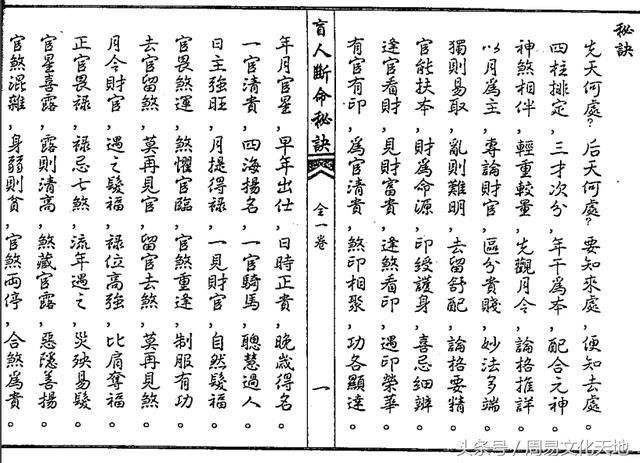 秘訣
先天何處?后天何處?要知來處,便知去處。
四柱排定,三才次分,年干為本,配合元神
神煞相伴,輕重較量,先觀月令,論格推詳
以月為主,專論財官,區分貴賤,妙法多端
獨則易取,亂則難明,去留舒配,論格要精
官能扶本,財為命源,印綬護身,喜忌細辨
逢官看財,見財富貴,逢煞看印,遇印榮華
有官有印,為官清貴,煞印相聚,功各顯達。
盲人斷命秘訣 全一卷 一
年月官星,早年出仕,日時正貴,晚歲得名
一官清貴,四海揚名,一官騎馬,聰慧過人
日主強旺,月提得祿,一見財官,自然發福
官畏煞運,煞懼官臨,官煞重逢,制服有功
去官留煞,莫再見官,留官去煞,莫再見煞
月令財官,遇之發福,祿位高強,比肩奪福
正官畏祿,祿忌七煞,流年遇之,災殃易發
官星喜露,露則清高,煞藏官露,惡隱善揚
官煞混雜,身弱則貧,官煞兩停,合煞為貴。
头条号/周易文化天地